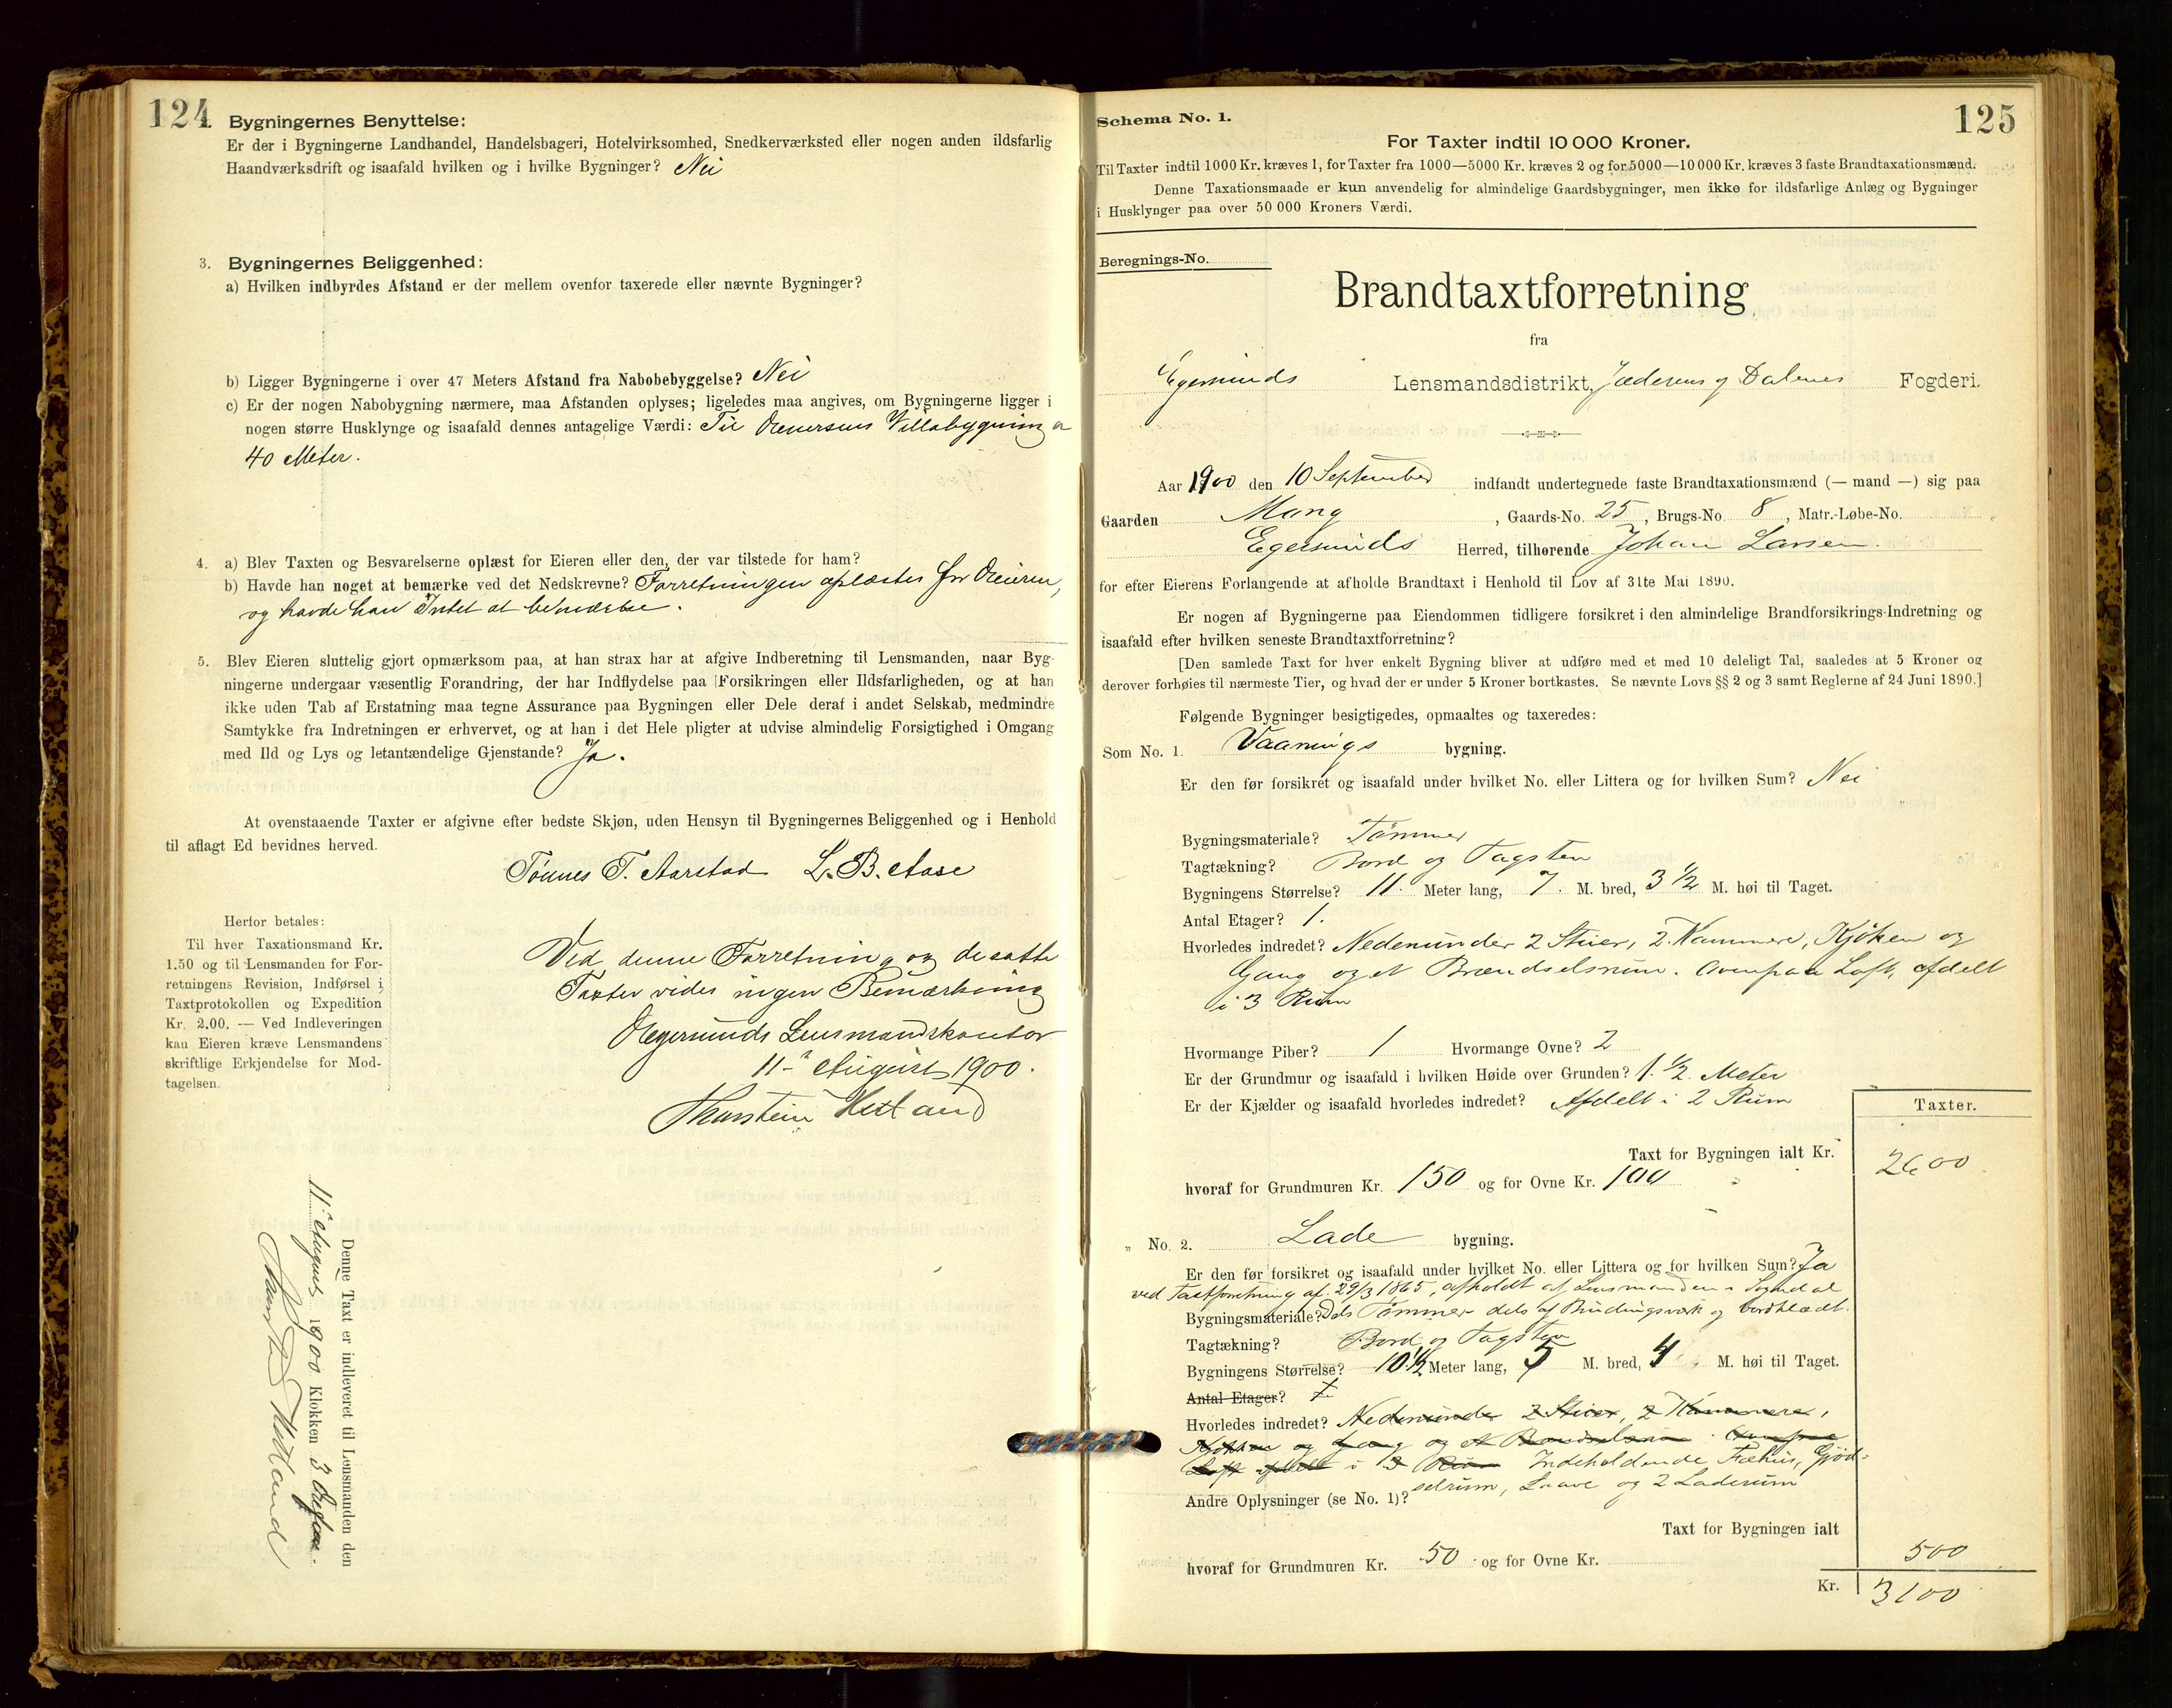 124
Bygningernes Benyttelse:
Er der i Bygningerne Landhandel, Handelsbageri, Hotelvirksomhed, Snedkerværksted eller nogen anden ildsfarlig
Haandværksdrift og isaafald hvilken og i hvilke Bygninger? Nei
3. Bygningernes Beliggenhed:
a) Hvilken indbyrdes Afstand er der mellem ovenfor taxerede eller nævnte Bygninger?
b) Ligger Bygningerne i over 47 Meters Afstand fra Nabobebyggelse? Nei
c) Er der nogen Nabobygning nærmere, maa Afstanden oplyses; ligeledes maa angives, om Bygningerne ligger i
nogen større Husklynge og isaafald dennes antagelige Værdi: Til Villabygning er
40 Meter.
4. a) Blev Taxten og Besvarelserne oplæst for Eieren eller den, der var tilstede for ham?
b) Havde han noget at bemærke ved det Nedskrevne? Forretningen oplæstes for Eieren,
og havde han Intet at bemærke.
5. Blev Eieren sluttelig gjort opmærksom paa, at han strax har at afgive Indberetning til Lensmanden, naar Byg-
ningerne undergaar væsentlig Forandring, der har Indflydelse paa Forsikringen eller Ildsfarligheden, og at han
ikke uden Tab af Erstatning maa tegne Assurance paa Bygningen eller Dele deraf i andet Selskab, medmindre
Samtykke fra Indretningen er erhvervet, og at han i det Hele pligter at udvise almindelig Forsigtighed i Omgang
med Ild og Lys og letantændelige Gjenstande? Ja.
At ovenstaaende Taxter er afgivne efter bedste Skjøn, uden Hensyn til Bygningernes Beliggenhed og i Henhold
til aflagt Ed bevidnes herved.
Tønnes T. Aarstad L. B. Aase
Herfor betales:
Til hver Taxationsmand Kr.
1.50 og til Lensmanden for For-
retningens Revision, Indførsel i
Taxtprotokollen og Expedition
Kr. 2.00. — Ved Indleveringen
kan Eieren kræve Lensmandens
skriftlige Erkjendelse for Mod-
tagelsen.
Ved denne Forretning og de satte
Taxter vides ingen Bemærkning
Egersunds Lensmandskontor
11 August 1900.
Thorstein Hetland
Denne Taxt er indleveret til Lensmanden den
11 August 1900 Klokken 3
Thorstein Hetland
125
Schema No. 1.
For Taxter indtil 10 000 Kroner.
Til Taxter indtil 1000 Kr. kræves 1, for Taxter fra 1000—5000 Kr. kræves 2 og for 5000—10 000 Kr. kræves 3 faste Brandtaxationsmænd.
Denne Taxationsmaade er kun anvendelig for almindelige Gaardsbygninger, men ikke for ildsfarlige Anlæg og Bygninger
i Husklynger paa over 50 000 Kroners Værdi.
Beregnings-No.
Brandtaxtforretning
fra
Egersunds Lensmandsdistrikt, Jæderens og Dalenes Fogderi.
Aar 1900 den 10 September indfandt undertegnede faste Brandtaxationsmænd (— mand —) sig paa
Gaarden Mong, Gaards-No. 25, Brugs-No. 8, Matr.-Løbe-No.
Egersunds Herred, tilhørende Johan Larsen.
for efter Eierens Forlangende at afholde Brandtaxt i Henhold til Lov af 31te Mai 1890.
Er nogen af Bygningerne paa Eiendommen tidligere forsikret i den almindelige Brandforsikrings-Indretning og
isaafald efter hvilken seneste Brandtaxtforretning?
[Den samlede Taxt for hver enkelt Bygning bliver at udføre med et med 10 deleligt Tal, saaledes at 5 Kroner og
derover forhøies til nærmeste Tier, og hvad der er under 5 Kroner bortkastes. Se nævnte Lovs §§ 2 og 3 samt Reglerne af 24 Juni 1890.]
Følgende Bygninger besigtigedes, opmaaltes og taxeredes:
Som No. 1. Vaanings bygning.
Er den før forsikret og isaafald under hvilket No. eller Littera og for hvilken Sum? Nei
Bygningsmateriale? Tømmer
Tagtækning? Bord og Tagsten
Bygningens Størrelse? 11. Meter lang, 7. M. bred, 3 1/2 M. høi til Taget.
Antal Etager? 1.
Hvorledes indredet? Nedenunder 2 Stuer, 2 Kammere, Kjøken og
Gang og et Brændselsrum. Ovenpaa Loft, afdelt
i 3 Rum
Hvormange Piber? 1 Hvormange Ovne? 2
Er der Grundmur og isaafald i hvilken Høide over Grunden? 1 1/2 Meter
Er der Kjælder og isaafald hvorledes indredet? Afdelt i 2 Rum
Taxter.
Taxt for Bygningen ialt Kr. 2600
hvoraf for Grundmuren Kr. 150 og for Ovne Kr. 100
„ No. 2. Lade bygning.
Er den før forsikret og isaafald under hvilket No. eller Littera og for hvilken Sum? Ja
ved Taxtforretning af 29/3 1865, afholdt af Lensmanden i Sogndal
Bygningsmateriale? Dels Tømmer dels af Bindingsværk og bordklædt.
Tagtækning? Bord og Tagsten
Bygningens Størrelse? 10 1/2 Meter lang, 5 M. bred, 4 M. høi til Taget.
Antal Etager?
Hvorledes indredet? Nedenunder 2 Stuer, 2 Kammere,
Kjøken og Gang og et Brændselsrum. Ovenpaa
Loft afdelt i 3 Rum Indeholdende Fæhus, Gjød-
selrum, Laave og 2 Laderum
Andre Oplysninger (se No. 1)?
Taxt for Bygningen ialt 500
hvoraf for Grundmuren Kr. 50 og for Ovne Kr.
Kr. 3100